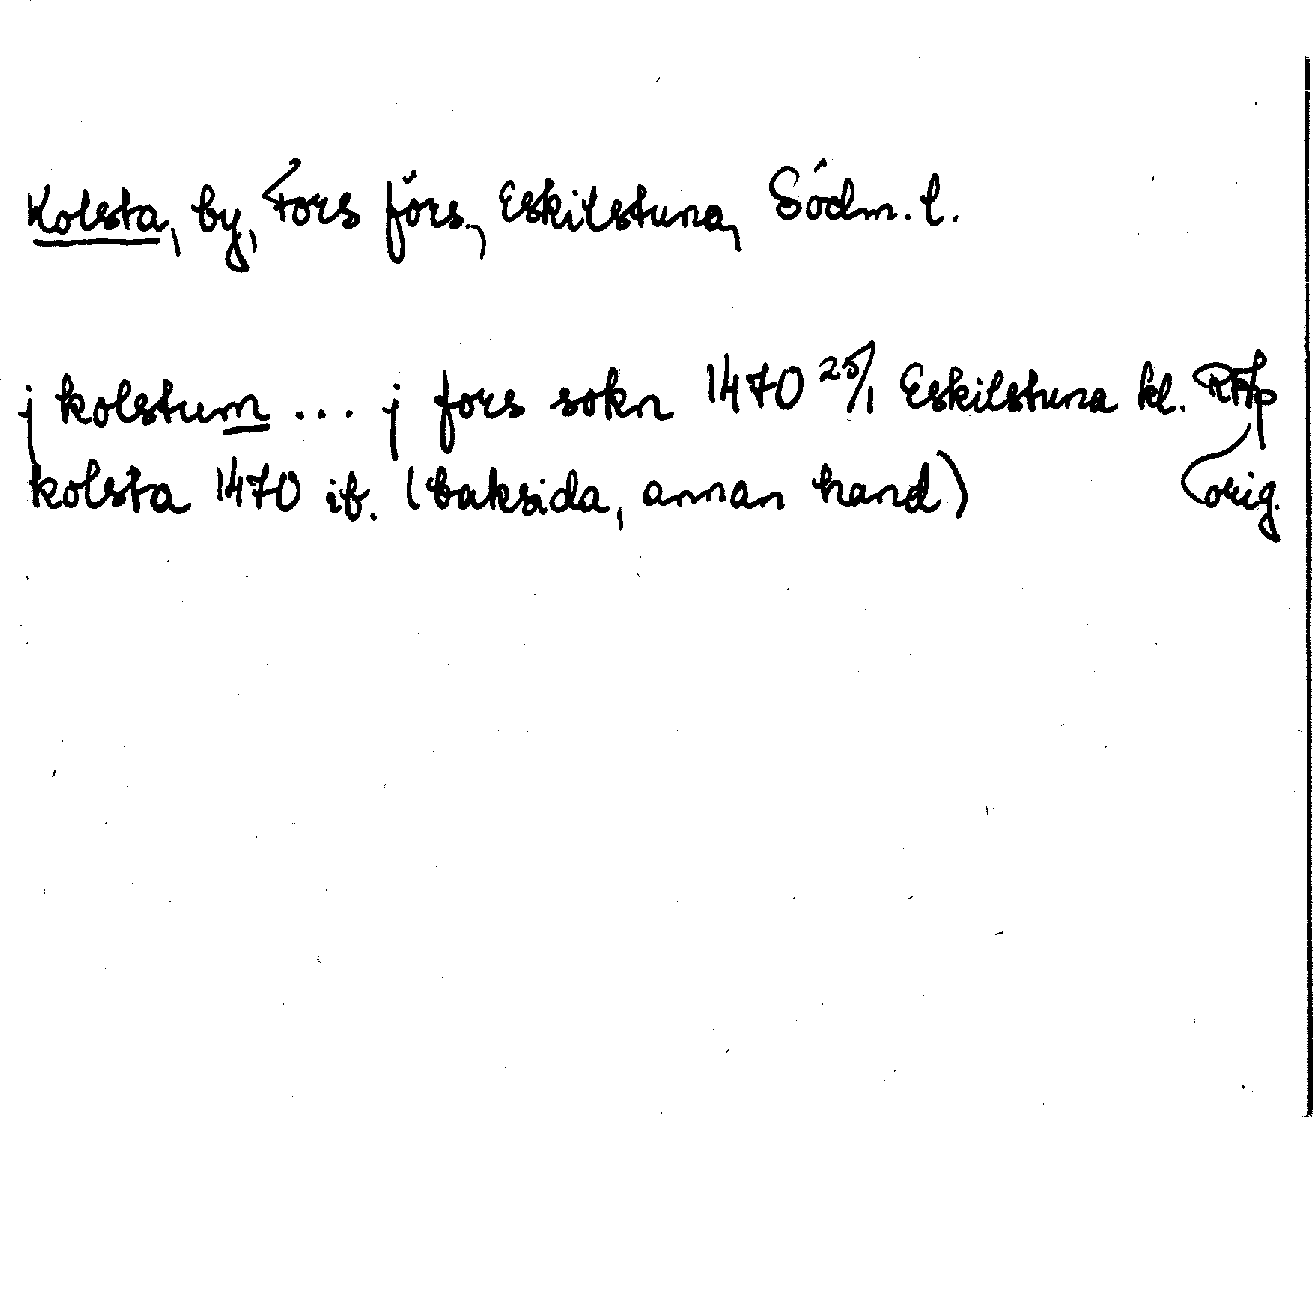 Kolsta, by, Fors förs., Eskilstuna, Södm. l.
j kolstum ... j fors sokn 1470 25/1 Eskilstuna kl. RAp
kolsta 1470 ib. (baksida, annan hand) orig.